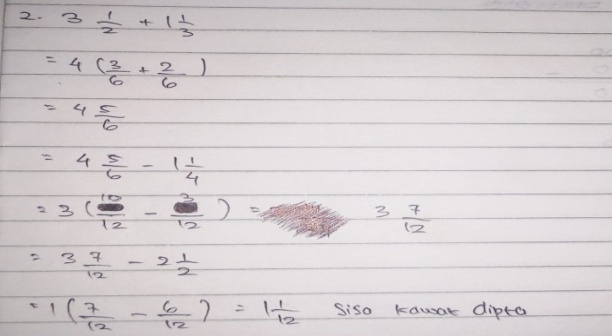 2. 3 1/2 + 1 1/3
= 4 (3/6 + 2/6)
= 4 5/6
= 4 5/6 - 1 1/4
= 3 (10/12 - 3/12) = 3 7/12
= 3 7/12 - 2 1/2
= 1 (7/12 - 6/12) = 1 1/12 Sisa kawat dipta